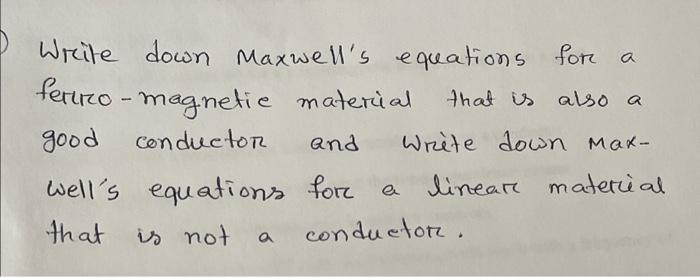 ) Write down Maxwell's equations for a
ferro-magnetic material that is also a
good conductor and Write down Max-
well's equations for a linear material
that is not a conductor.